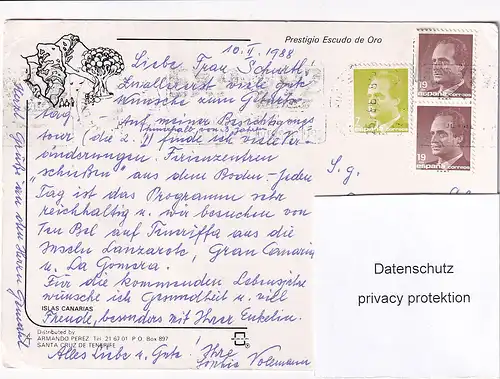 Prestigio Escudo de Oro
10. II. 1988
Liebe Frau
Zuallererst viele gute
Wünsche zum Geburts-
tag Auf meiner Besichtigungs
tour (die 2. innerhalb von 3 Jahren) finde ich viele Ver
änderungen. Ferienzentren
„schießen" aus dem Boden - Jeden
Tag ist das Programm sehr
reichhaltig u. wir besuchen von
Ten Bel auf Teneriffa aus die
Inseln Lanzarote, Gran Canaria
u. La Gomera.
Für die kommenden Lebensjahre
wünsche ich Gesundheit u. viel
Freude, besonders mit Ihrer Enkelin.
Alles Liebe u. Gute! Ihre
Sophie
ISLAS CANARIAS
Distributed by
ARMANDO PEREZ Tel. 21 67 01 P.O. Box 897
SANTA CRUZ DE TENERIFE
7
españa correos
19
españa correos
19
españa correos
S. g.
Datenschutz
privacy protektion